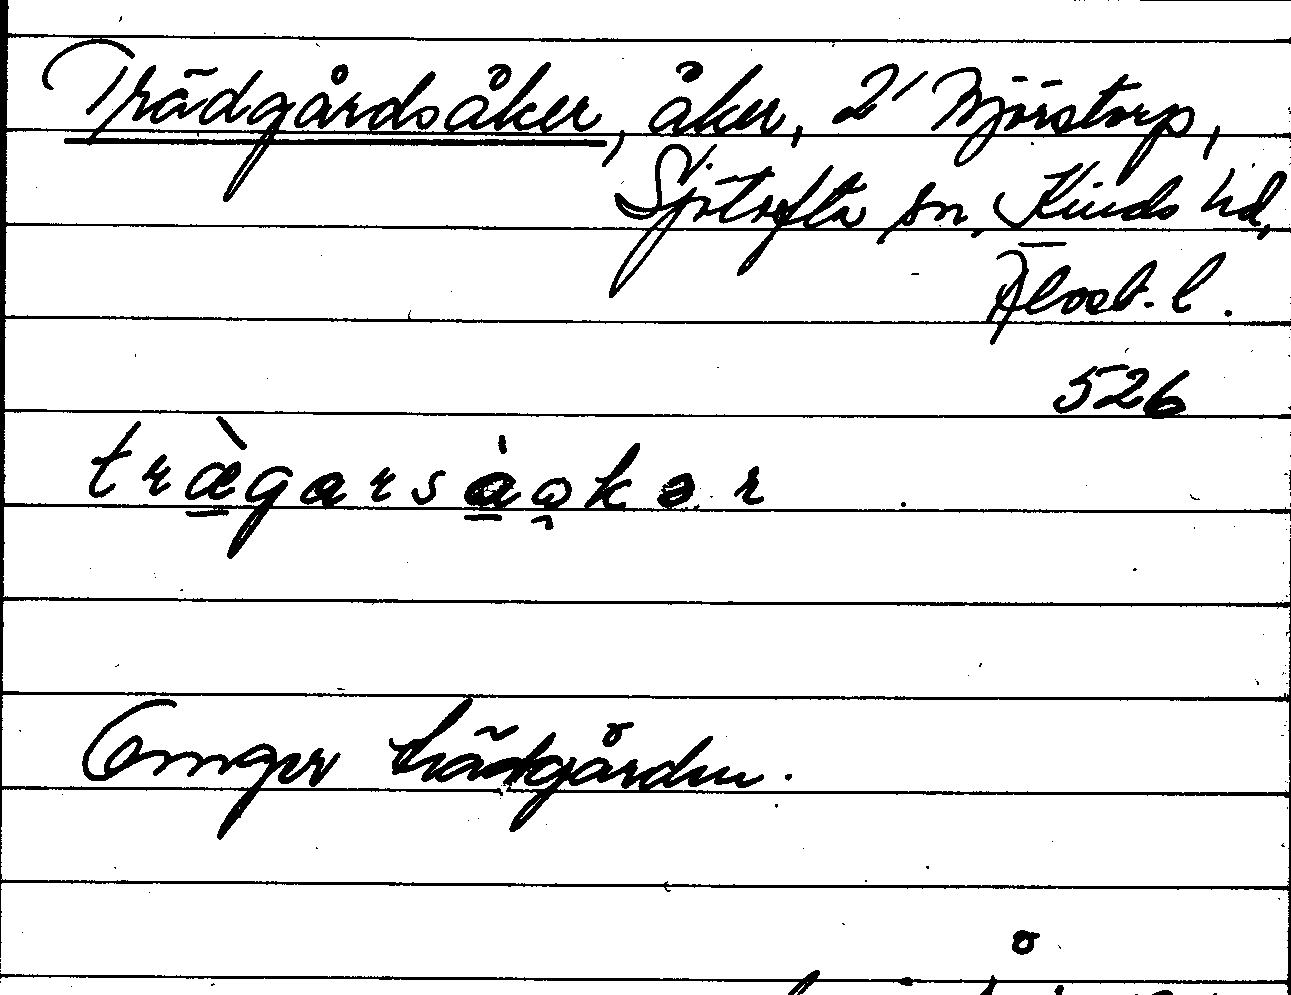 Trädgårdsåker, åker, 2' Björstorp,
Sjötofta sn, Kinds hd,
Älvsb. l.
526
trægarsåo̯kər
Omger trädgården.